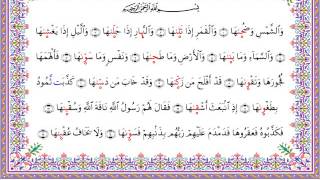 بِسْمِ اللَّهِ الرَّحْمَٰنِ الرَّحِيمِ
وَالشَّمْسِ وَضُحَىٰهَا وَالْقَمَرِ إِذَا تَلَىٰهَا وَالنَّهَارِ إِذَا جَلَّىٰهَا وَاللَّيْلِ إِذَا يَغْشَىٰهَا
وَالسَّمَاءِ وَمَا بَنَىٰهَا وَالْأَرْضِ وَمَا طَحَىٰهَا وَنَفْسٍ وَمَا سَوَّىٰهَا فَأَلْهَمَهَا
فُجُورَهَا وَتَقْوَىٰهَا قَدْ أَفْلَحَ مَن زَكَّىٰهَا وَقَدْ خَابَ مَن دَسَّىٰهَا كَذَّبَتْ ثَمُودُ
بِطَغْوَىٰهَا إِذِ انبَعَثَ أَشْقَىٰهَا فَقَالَ لَهُمْ رَسُولُ اللَّهِ نَاقَةَ اللَّهِ وَسُقْيَٰهَا
فَكَذَّبُوهُ فَعَقَرُوهَا فَدَمْدَمَ عَلَيْهِمْ رَبُّهُم بِذَنبِهِمْ فَسَوَّىٰهَا وَلَا يَخَافُ عُقْبَٰهَا